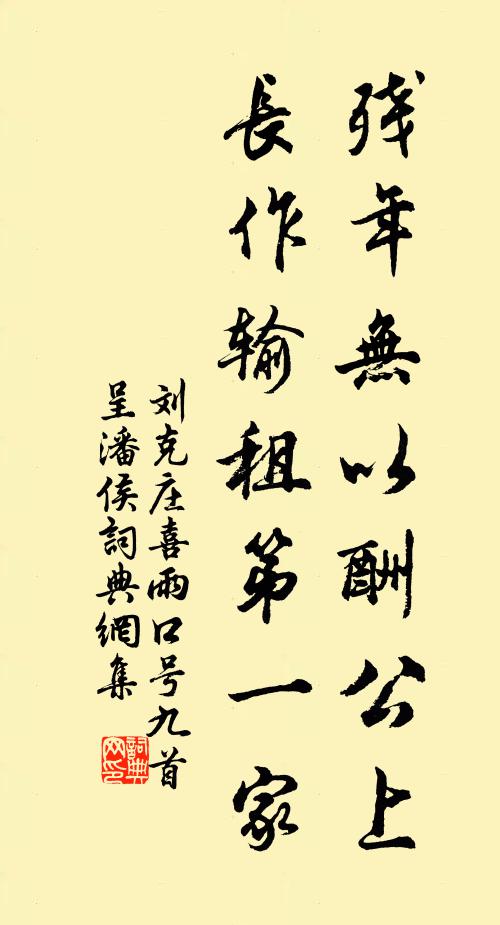 残年無以酬公上
長作输租第一家
刘克庄喜雨口号九首
呈潘侯詞典網集
詞典網印